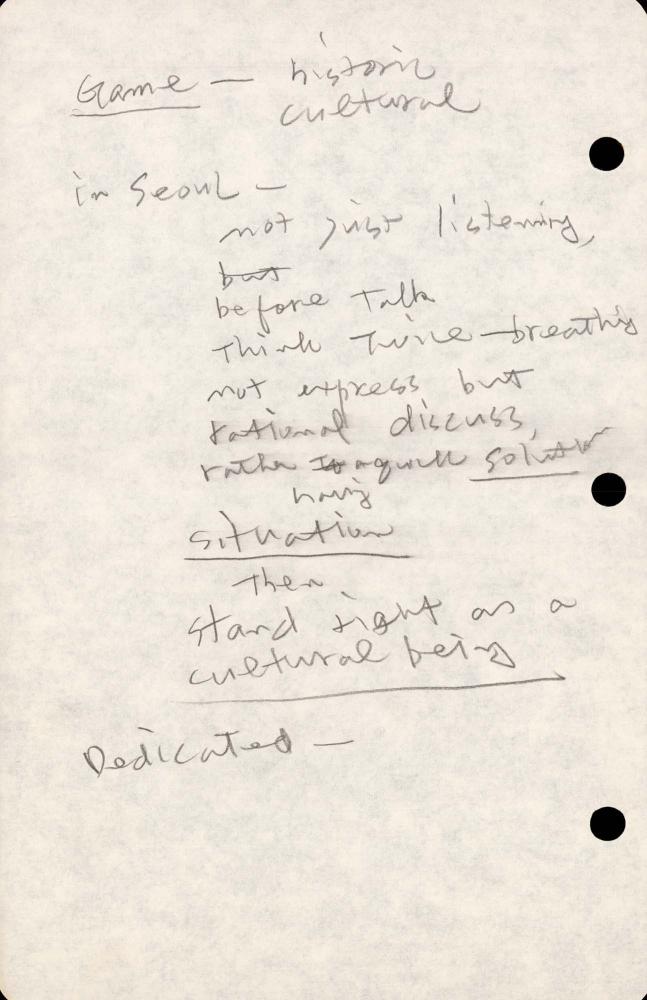 Game — historic
cultural
in Seoul —
not just listening,
but
before talk
Think Twice — breathing
not express but
rational discuss,
rather a quick solution
having
situation
Then
stand right as a
cultural being
Dedicated —